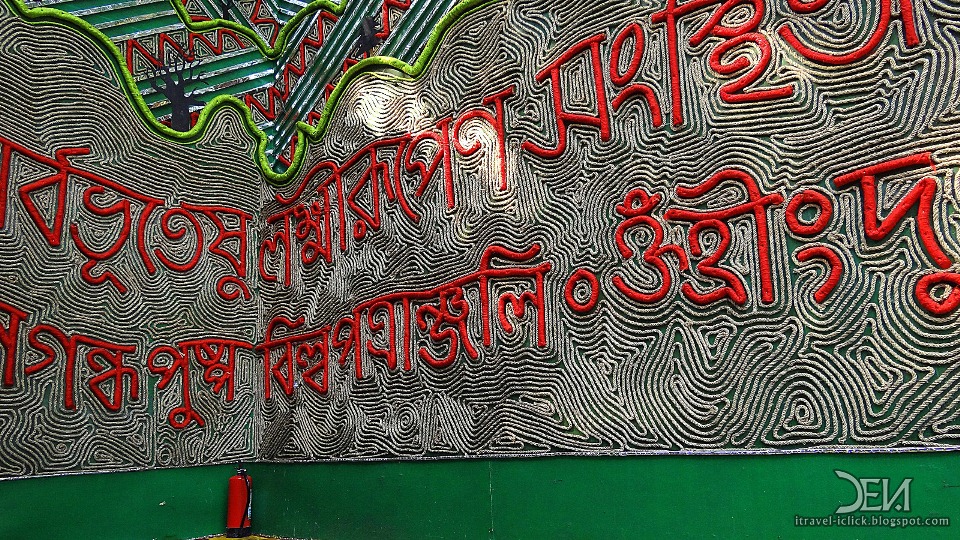 র্বভূতেষু লক্ষ্মীরূপেণ সংস্থিতা
সগন্ধ পুষ্প বিল্বপত্রাঞ্জলি ঃ ওঁ হ্রীং দু
DEN
itravel-iclick.blogspot.com